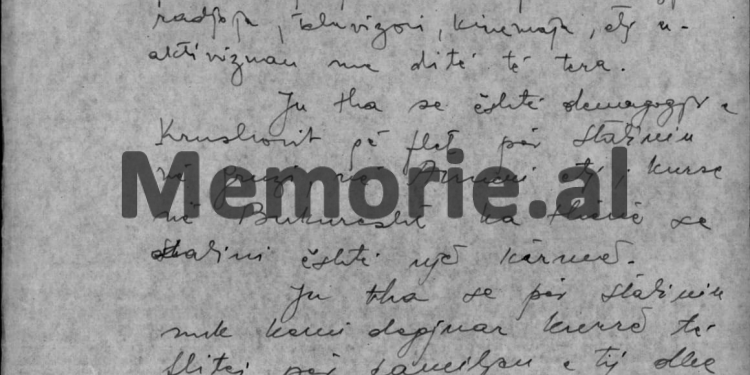 radjoja, televizori, kinemaja, etj u-
aktiviznan me ditë të tera.
Ju tha se është demagogji e
Krushovit që flet për Stalinin
në Gruzi, në Armeni etj, kurse
Memorie.al
në Bukuresht ka thënë se
Stalini është një kërmë.
Ju tha se për Stalinin
nuk kemi dëgjuar kurrë të
flitej për familjen e tij dhe